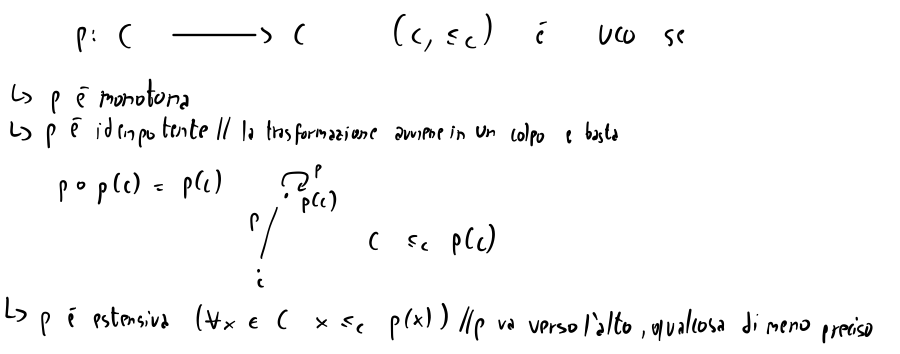 p: C ⟶ C (C, ≤c) é uco se
↳ p é monotona
↳ p é idempotente // la trasformazione avviene in un colpo e basta
p ∘ p(c) = p(c) p p(c)
p
C ≤c p(c)
c
↳ p é estensiva (∀x ∈ C x ≤c p(x)) // p va verso l'alto, qualcosa di meno preciso